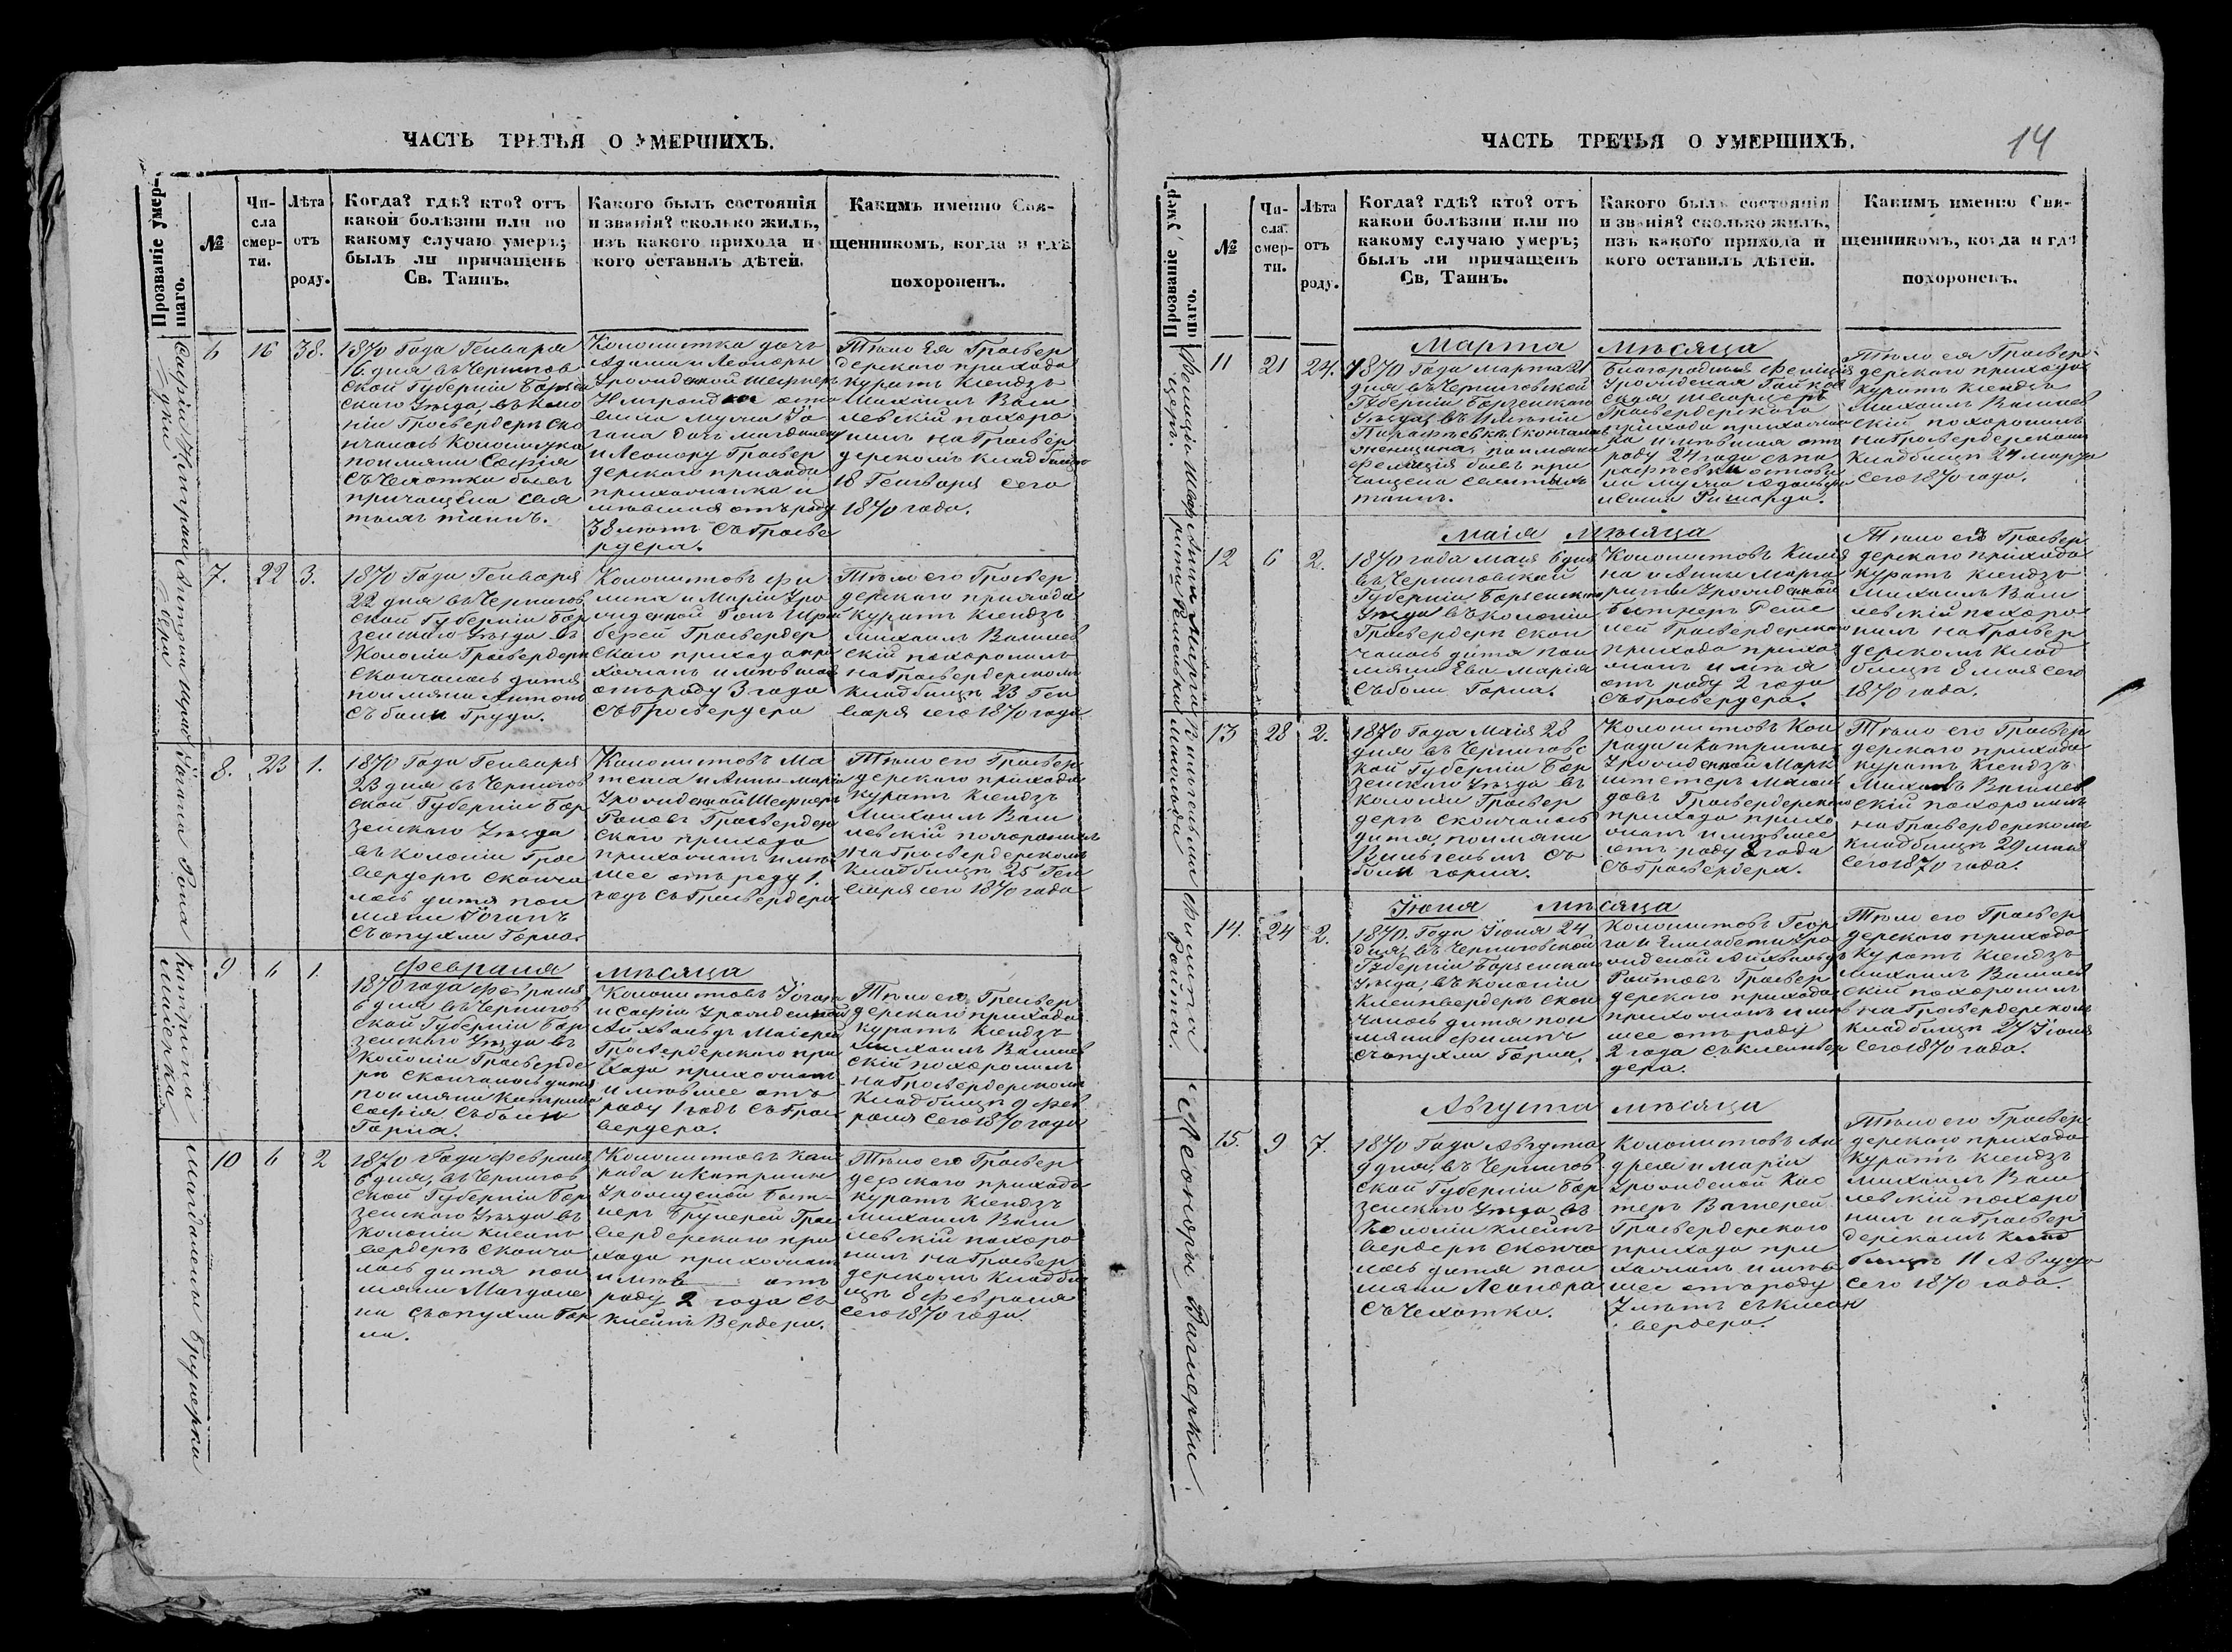 ЧАСТЬ ТРЕТЬЯ О УМЕРШИХЪ.
Прозваніе умер-
шаго.
№
Чи-
сла
смер-
ти.
Лѣта
отъ
роду.
Когда? гдѣ? кто? отъ
какой болѣзни или по
какому случаю умеръ;
былъ ли причащенъ
Св. Таинъ.
Какого былъ состоянія
и званія? сколько жилъ,
изъ какого прихода и
кого оставилъ дѣтей.
Какимъ именно Свя-
щенникомъ, когда и гдѣ
похороненъ.
6
16
38.
1870 Года Генваря
16 дня въ Чернигов
ской Губерніи Борзен
скаго Уѣзда, въ коло
ніи Гросвердеръ ско
нчалась Колонистка
по имяни Софія
съ Чехотки бывъ
причащена свя
тыхъ таинъ.
Колонистка дочь
Адама и Леоноры
Урожденной Шефнеръ
оста
вила мужа Іо
гана дочь Магдалену
и Леонору Гросвер
дерскаго прихода
прихожанка и
мѣвшая отъ роду
38 лѣтъ съ Гросве
рдера.
Тѣло ея Гросвер
дерскаго прихода
куратъ Ксендзъ
Михаилъ Ваш
левскій похоро
нилъ на Гросвер
дерскомъ кладбищѣ
18 Генваря сего
1870 года.
7.
22
3.
1870 Года Генваря
22 дня въ Чернигов
ской Губерніи Бор
зенскаго Уѣзда въ
Колоніи Гросвердеръ
скончалось дитя
по имяни Антонъ
съ боли Груди.
Колонистовъ Фи
липа и Маріи Уро
жденной
Гросвердер
скаго прихода при
хожанъ имѣвшее
отъ роду 3 года
съ Гросвердера
Тѣло его Гросвер
дерскаго прихода
куратъ Ксендзъ
Михаилъ Вашлев
скій похоронилъ
на Гросвердерскомъ
кладбищѣ 23 Ген
варя сего 1870 года
Іогана Рона
8.
23
1.
1870 Года Генваря
23 дня въ Чернигов
ской Губерніи Бор
зенскаго Уѣзда
въ колоніи Грос
вердеръ сконча
лось дитя по и
мяни Іоганъ
съ опухли Горла.
Колонистовъ Ма
теаса и Анны Маріи
Урожденной Шефнеръ
Роновъ Гросвердер
скаго прихода
прихожанъ имѣв
шее отъ роду 1.
годъ съ Гросвердера
Тѣло его Гросвер
дерскаго прихода
куратъ Ксендзъ
Михаилъ Ваш
левскій похоронилъ
на Гросвердерскомъ
кладбищѣ 25 Ген
варя сего 1870 года
Февраля мѣсяца
Катрина
Маіерка
9
6
1.
1870 года Февраля
6 дня въ Чернигов
ской Губерніи Бор
зенскаго Уѣзда въ
Колоніи Гросверде
ръ скончалось дитя
по имяни Катрина
Софія съ боли
Горла.
Колонистовъ Іогана
и Софіи Урожденной
Айхвальдъ Маіерей
Гросвердерскаго при
хода прихожанъ
имѣвшее отъ
роду 1 годъ съ Грос
вердера.
Тѣло ея Гросвер
дерскаго прихода
куратъ Ксендзъ
Михаилъ Вашлев
скій похоронилъ
на Гросвердерскомъ
кладбищѣ 9 Фев
раля сего 1870 года
Магдалены Брунерки
10
6
2
1870 Года Февраля
6 дня, въ Чернигов
ской Губерніи Бор
зенскаго Уѣзда въ
колоніи Клейнъ
вердеръ сконча
лось дитя по и
мяни Магдале
на съ опухли Гор
ла.
Колонистовъ Кон
рада и Катрины
Урожденой Бит-
неръ Брунерей Грос
вердерскаго при
хода прихожанъ
имѣв отъ
роду 2 года съ
Клейнъ Вердера.
Тѣло его Гросвер
дерскаго прихода
куратъ Ксендзъ
Михаилъ Ваш
левскій похоро
нилъ на Гросвер
дерскомъ кладби
щѣ 8 Февраля
сего 1870 года.
ЧАСТЬ ТРЕТЬЯ О УМЕРШИХЪ.
14
Прозваніе умер-
шаго.
№
Чи-
сла
смер-
ти.
Лѣта
отъ
роду.
Когда? гдѣ? кто? отъ
какой болѣзни или по
какому случаю умеръ;
былъ ли причащенъ
Св. Таинъ.
Какого былъ состоянія
и званія? сколько жилъ,
изъ какого прихода и
кого оставилъ дѣтей.
Какимъ именно Свя-
щенникомъ, когда и гдѣ
похороненъ.
Марта мѣсяца
11
21
24.
1870 Года Марта 21
дня въ Черниговской
Губерніи Борзенскаго
Уѣзда въ Имѣніи
Парафѣевкѣ скончалась
женщина, по имяни
Фелиція бывъ при
чащена святыхъ
таинъ.
Благородныя Фелиція
Урожденая
Гросвердерскаго
прихода прихожан
ка имѣвшая отъ
роду 24 года съ Па
рафѣевки остави
ла мужа
и сына Ришарда.
Тѣло ея Гросвер-
дерскаго прихода
куратъ Ксендзъ
Михаилъ Вашлев
скій похоронилъ
на Гросвердерскомъ
кладбищѣ 24 марта
сего 1870 года.
Маія мѣсяца
12
6
2.
1870 года Маія 6 дня
въ Черниговской
Губерніи Борзенскаго
Уѣзда въ Колоніи
Гросвердеръ скон
чалось дитя по и
мяни Ева Марія
съ боли Горла.
Колонистовъ Килія
на и Анны Марга
риты Урожденной
Битнеръ
Гросвердерскаго
прихода прихо
жанъ имѣв
отъ роду 2 года
съ Гросвердера.
Тѣло ея Гросвер
дерскаго прихода
куратъ Ксендзъ
Михаилъ Ваш
левскій похоро
нилъ на Гросвер
дерскомъ клад
бищѣ 8 мая сего
1870 года.
13
28
2.
1870 Года Маія 28
дня въ Черниговс
кой Губерніи Бор
зенскаго Уѣзда въ
колоніи Гросвер
деръ скончалось
дитя, по имяни
Вильгельмъ съ
боли горла.
Колонистовъ Кон
рада и Катрины
Урожденной Марк
штетеръ
Гросвердерскаго
прихода прихо
жанъ имѣвшее
отъ роду 2 года
съ Гросвердера.
Тѣло его Гросвер
дерскаго прихода
куратъ Ксендзъ
Михаилъ Вашлев
скій похоронилъ
на Гросвердерскомъ
кладбищѣ 29 мая
сего 1870 года.
Іюня мѣсяца
Филипа
Ройта.
14.
24
2.
1870. Года Іюня 24
дня, въ Черниговской
Губерніи Борзенскаго
Уѣзда, въ колоніи
Клейнвердеръ скон
чалось дитя по и
мяни Филипъ
съ опухли Горла.
Колонистовъ Геор
га и Елисабеты Уро
жденой Айхвальдъ
Ройтовъ Гросвер
дерскаго прихода
прихожанъ имѣв
шее отъ роду
2 года съ Клейнвер
дера.
Тѣло его Гросвер
дерскаго прихода
куратъ Ксендзъ
Михаилъ Вашлев
скій похоронилъ
на Гросвердерскомъ
кладбищѣ 27 Іюня
сего 1870 года.
Августа мѣсяца
Леоноры Вагнерки
15.
9
7.
1870 Года Августа
9 дня, въ Чернигов
ской Губерніи Бор
зенскаго Уѣзда въ
Колоніи Клейнъ
вердеръ сконча
лось дитя по и
мяни Леонора
съ Чехотки.
Колонистовъ Ан
дреа и Маріи
Урожденой Кас
перъ Вагнерей
Гросвердерскаго
прихода при
хожанъ имѣв
шее отъ роду
7 лѣтъ съ Клейн
вердера.
Тѣло его Гросвер
дерскаго прихода
куратъ Ксендзъ
Михаилъ Ваш
левскій похоро
нилъ на Гросвер
дерскомъ клад
бищѣ 11 Августа
сего 1870 года.